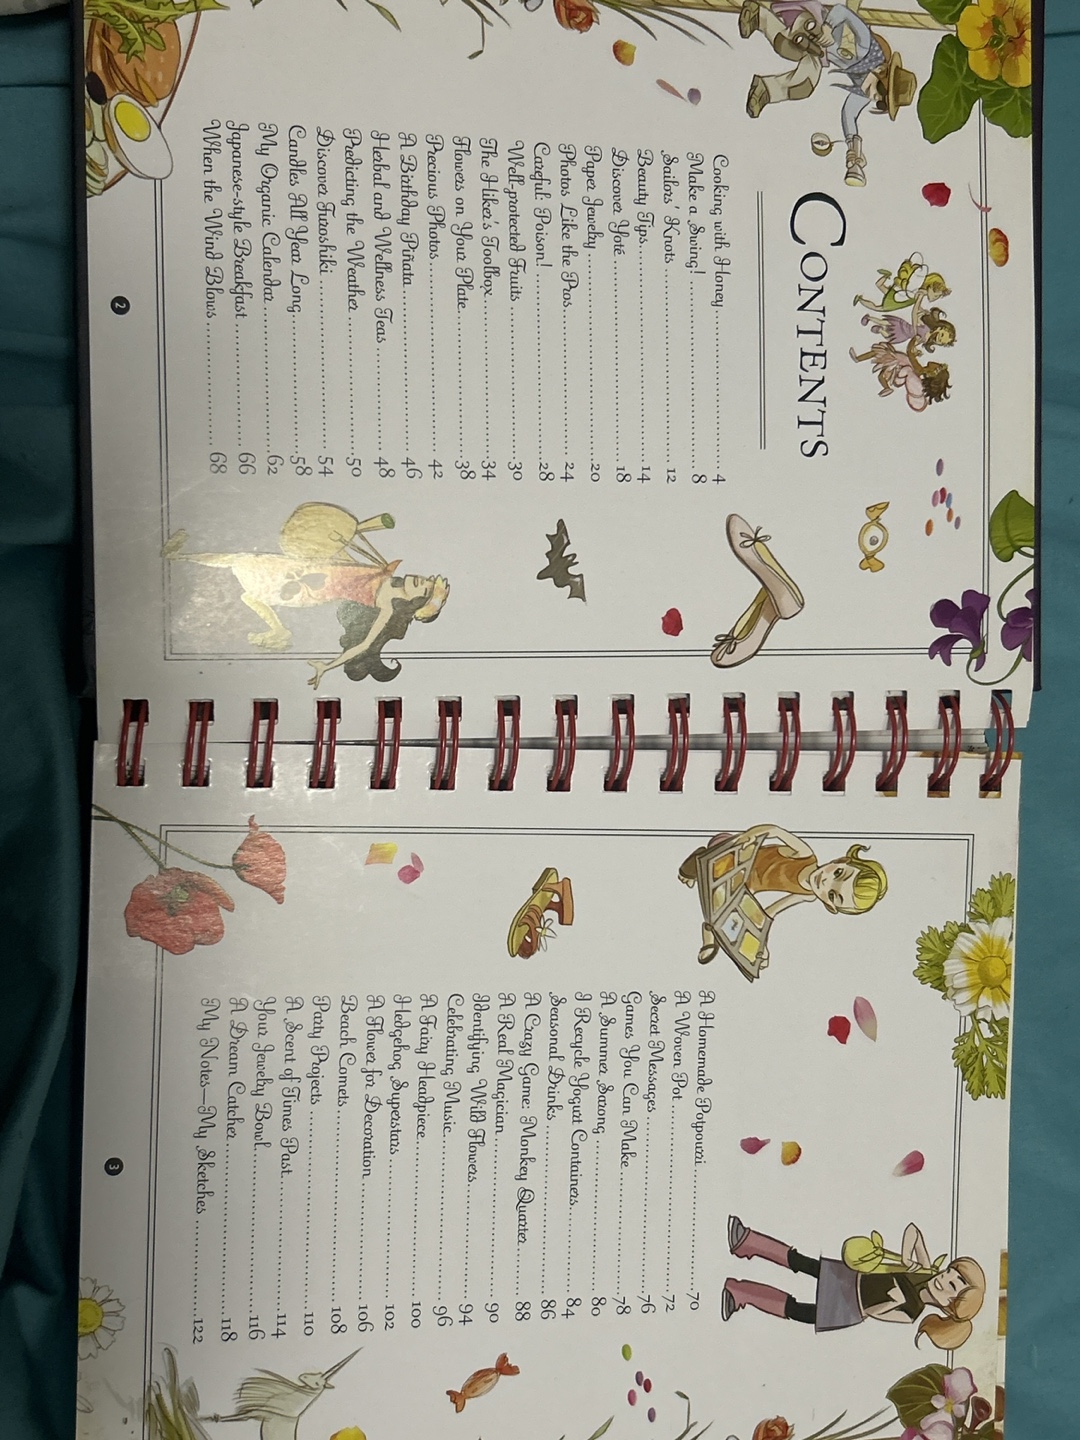 CONTENTS
Cooking with Honey 4
Make a Swing! 8
Sailors' Knots 12
Beauty Tips 14
Discover Yoté 18
Paper Jewelry 20
Photos Like the Pros 24
Careful: Poison! 28
Well-protected Fruits 30
The Hiker's Toolbox 34
Flowers on Your Plate 38
Precious Photos 42
A Birthday Piñata 46
Herbal and Wellness Teas 48
Predicting the Weather 50
Discover Furoshiki 54
Candles All Year Long 58
My Organic Calendar 62
Japanese-style Breakfast 66
When the Wind Blows 68
2
A Homemade Potpourri 70
A Woven Pot 72
Secret Messages 76
Games You Can Make 78
A Summer Sarong 80
I Recycle Yogurt Containers 84
Seasonal Drinks 86
A Crazy Game: Monkey Quarter 88
A Real Magician 90
Identifying Wild Flowers 94
Celebrating Music 96
A Fairy Headpiece 100
Hedgehog Superstars 102
A Flower for Decoration 106
Beach Comets 108
Party Projects 110
A Scent of Times Past 114
Your Jewelry Bowl 116
A Dream Catcher 118
My Notes—My Sketches 122
3